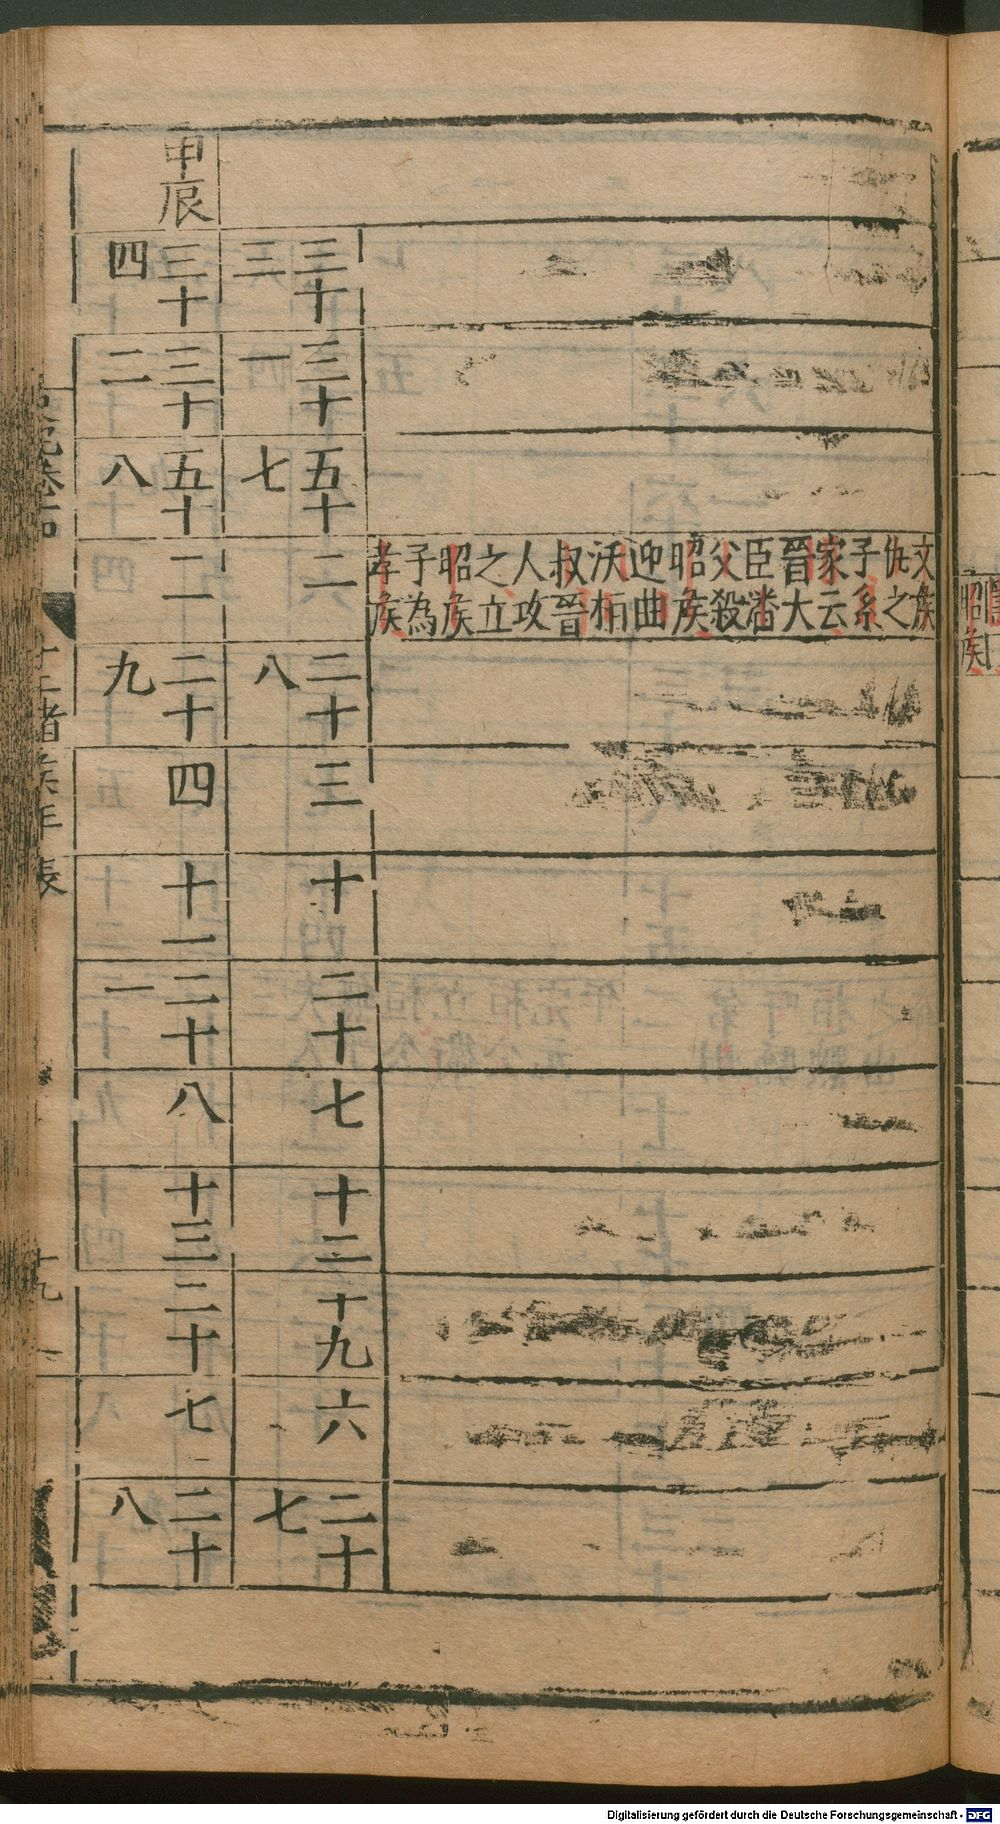 昭侯
文侯
仇之
子系
家云
晉大
臣潘
父殺
昭侯
迎曲
沃栢
叔晉
人攻
之立
昭侯
子為
孝侯
三十三
三十一
五十七
二
二十八
三
十
二十
七
十二
十九
六
二十七
甲辰
三十四
三十二
五十八
二
二十九
四
十一
二十一
八
十三
二十
七
二十八
十二諸侯年表
十九
Digitalisierung gefördert durch die Deutsche Forschungsgemeinschaft - DFG